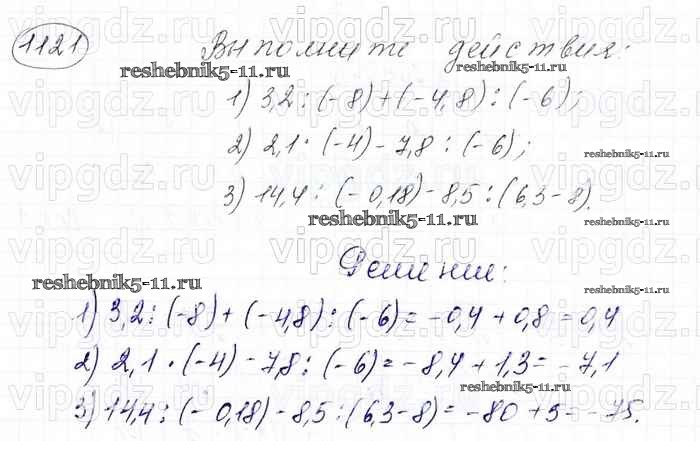 1121 Выполните действия:
1) 3,2 : (-8) + (-4,8) : (-6);
2) 2,1 · (-4) - 7,8 : (-6);
3) 14,4 : (-0,18) - 8,5 : (6,3-8).
Решение:
1) 3,2 : (-8) + (-4,8) : (-6) = -0,4 + 0,8 = 0,4
2) 2,1 · (-4) - 7,8 : (-6) = -8,4 + 1,3 = -7,1
3) 14,4 : (-0,18) - 8,5 : (6,3-8) = -80 + 5 = -75.
reshebnik5-11.ru
reshebnik5-11.ru
reshebnik5-11.ru
reshebnik5-11.ru
reshebnik5-11.ru
vipgdz.ru